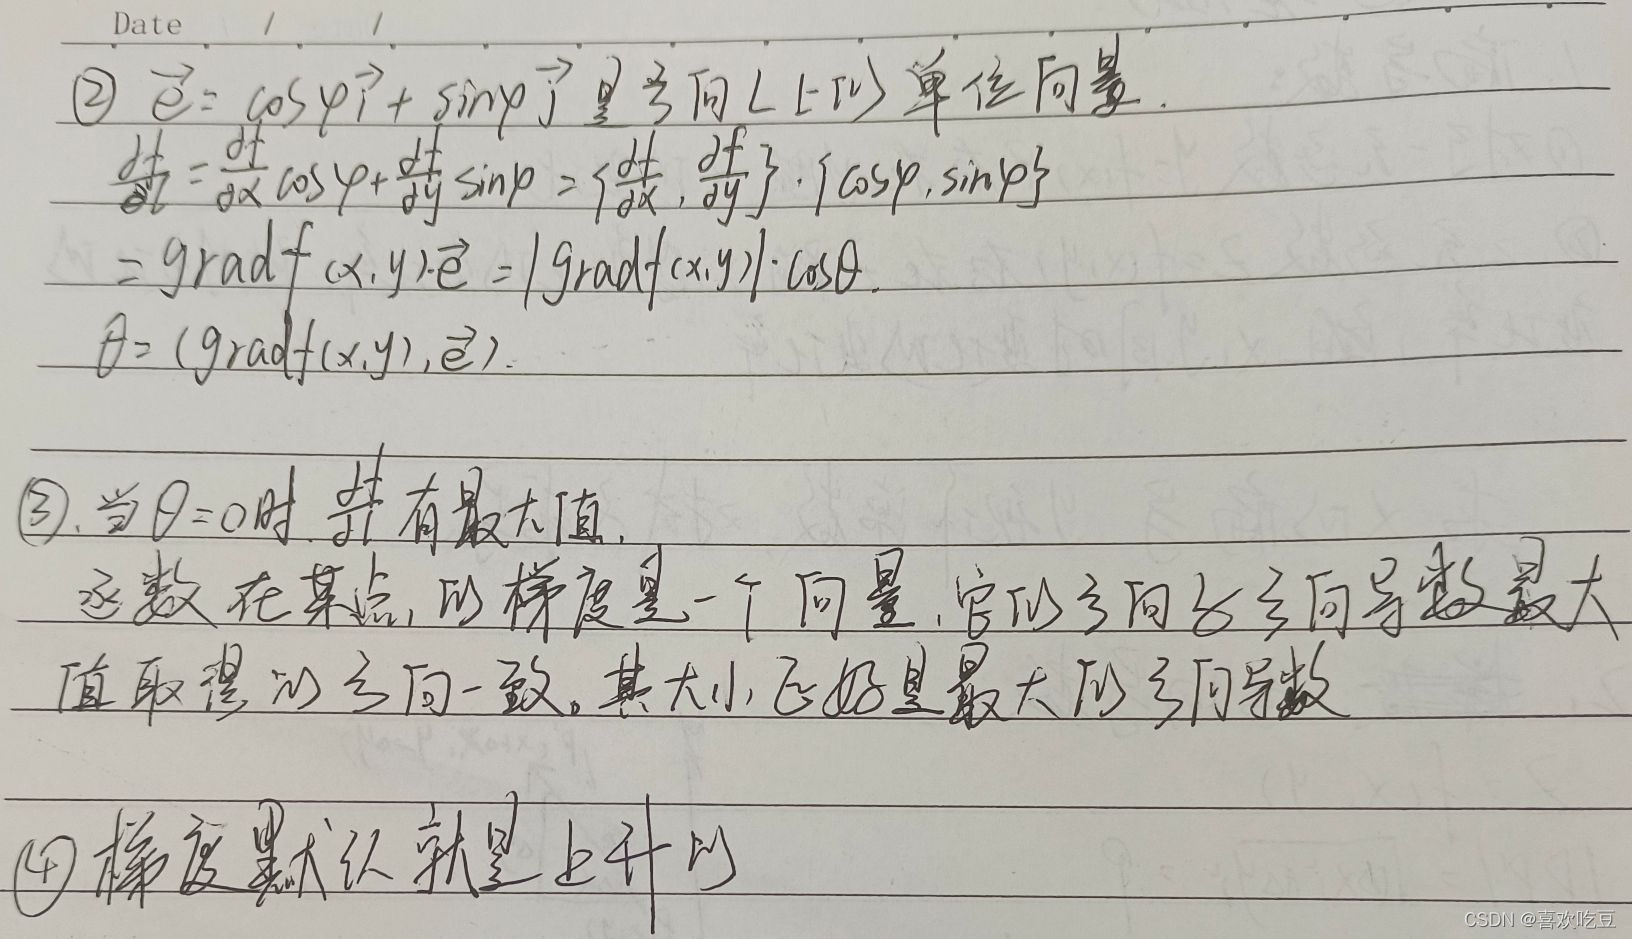 Date / /
② e⃗ = cosφ i⃗ + sinφ j⃗ 是方向L上的单位向量.
∂f/∂l = ∂f/∂x cosφ + ∂f/∂y sinφ = {∂f/∂x, ∂f/∂y}·{cosφ, sinφ}
= grad f(x,y)·e⃗ = |grad f(x,y)|·cosθ.
θ = (grad f(x,y), e⃗).
③. 当θ=0时 ∂f/∂l 有最大值.
函数在某点的梯度是一个向量,它的方向与方向导数最大
值取得的方向一致。其大小正好是最大的方向导数
④ 梯度默认就是上升的
CSDN @喜欢吃豆